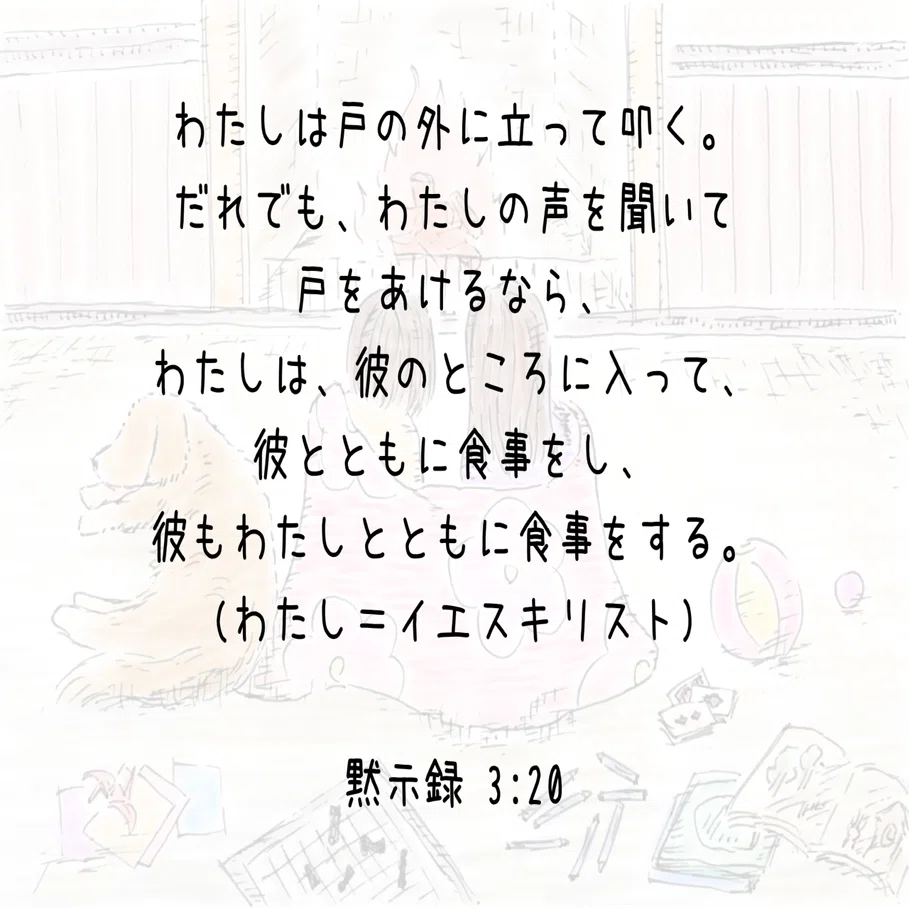 わたしは戸の外に立って叩く。
だれでも、わたしの声を聞いて
戸をあけるなら、
わたしは、彼のところに入って、
彼とともに食事をし、
彼もわたしとともに食事をする。
(わたし=イエスキリスト)
黙示録 3:20